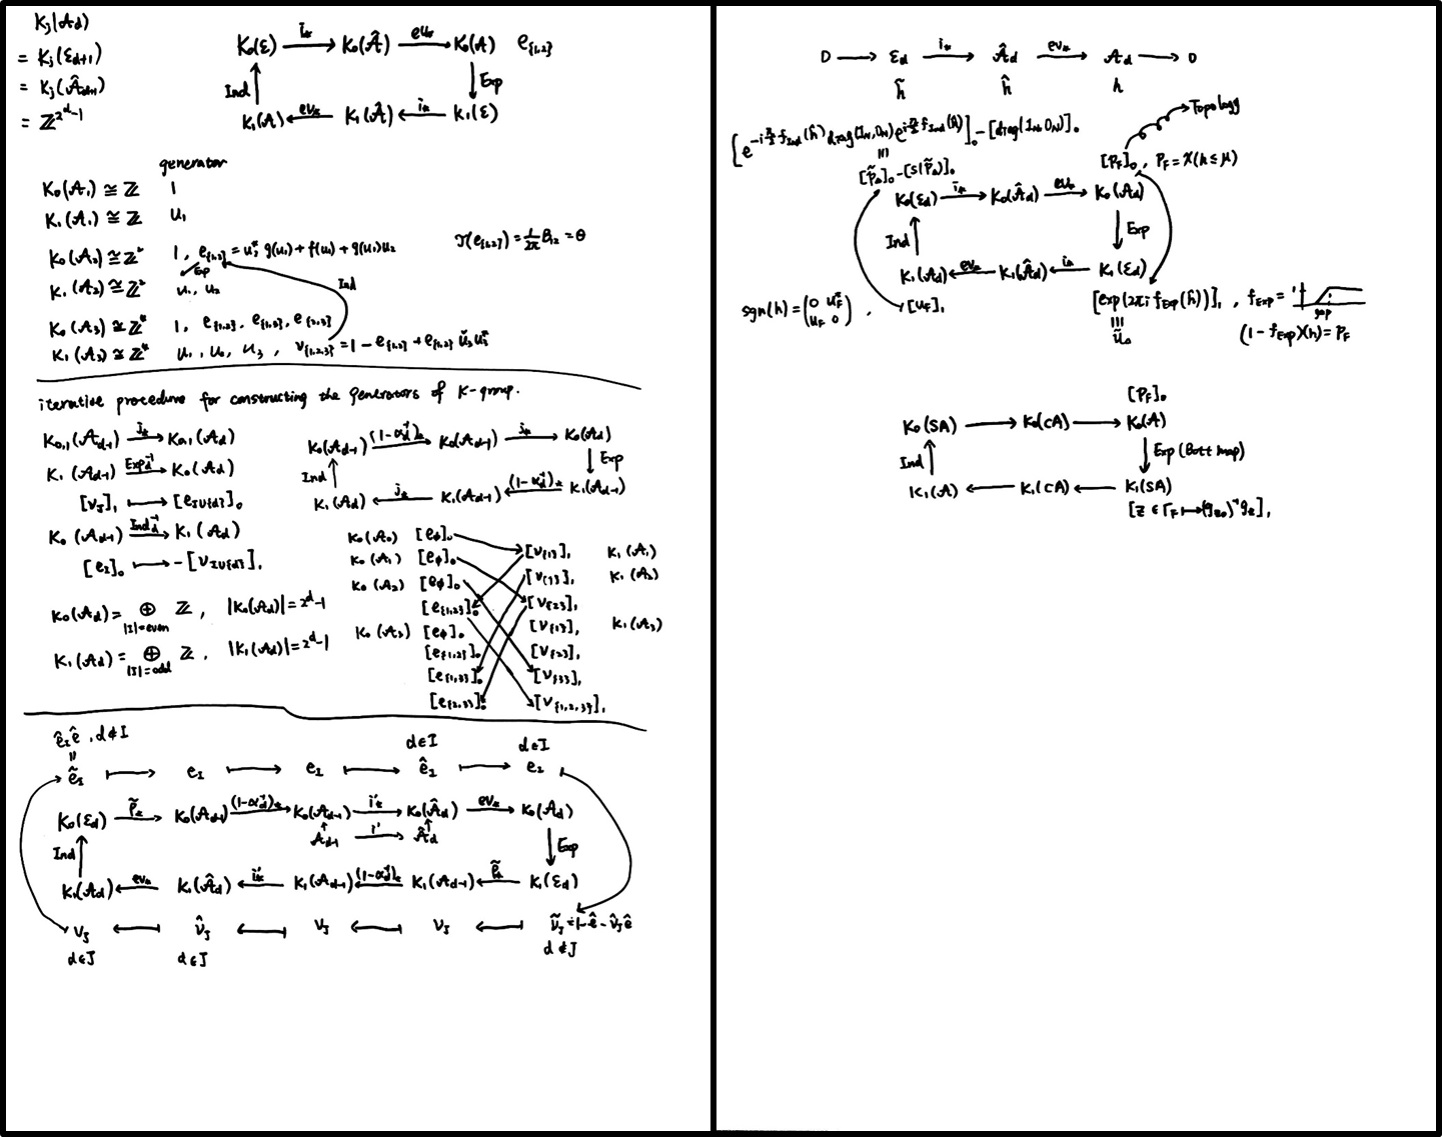 K_j(𝒜_d)
= K_j(ℰ_{d+1})
= K_j(𝒜̂_{d+1})
= ℤ^{2^{d-1}}
K₀(ℰ) —i_*→ K₀(𝒜̂) —ev_*→ K₀(A) e_{{1,2}}
Ind ↑ ↓ Exp
K₁(A) ←ev_*— K₁(𝒜̂) ←i_*— K₁(ℰ)
generator
K₀(𝒜₁) ≅ ℤ 1
K₁(𝒜₁) ≅ ℤ u₁
K₀(𝒜₂) ≅ ℤ² 1, e_{{1,2}} = u₂* g(u₁) + f(u₁) + g(u₁)u₂ 𝒯(e_{{1,2}}) = 1/2π B₁₂ = θ
Exp Ind
K₁(𝒜₂) ≅ ℤ² u₁, u₂
K₀(𝒜₃) ≅ ℤ⁴ 1, e_{{1,2}}, e_{{1,3}}, e_{{2,3}}
K₁(𝒜₃) ≅ ℤ⁴ u₁, u₂, u₃, v_{{1,2,3}} = 1 - e_{{1,2}} + e_{{1,2}} ũ₃u₃*
iterative procedure for constructing the generators of K-group.
K_{0,1}(𝒜_{d-1}) —j_*→ K_{0,1}(𝒜_d)
K₁(𝒜_{d-1}) —Exp_d^{-1}→ K₀(𝒜_d)
[v_J]₁ ⟼ [e_{J∪{d}}]₀
K₀(𝒜_{d-1}) —Ind_d^{-1}→ K₁(𝒜_d)
[e_I]₀ ⟼ -[v_{I∪{d}}]₁
K₀(𝒜_d) = ⊕_{|I|=even} ℤ, |K₀(𝒜_d)| = 2^{d-1}
K₁(𝒜_d) = ⊕_{|J|=odd} ℤ, |K₁(𝒜_d)| = 2^{d-1}
K₀(𝒜_{d-1}) —(1-α_d^{-1})_*→ K₀(𝒜_{d-1}) —j_*→ K₀(𝒜_d)
Ind ↑ ↓ Exp
K₁(𝒜_d) ←j_*— K₁(𝒜_{d-1}) ←(1-α_d^{-1})_*— K₁(𝒜_{d-1})
K₀(𝒜₀) [e_ϕ]₀ [v_{{1}}]₁ K₁(𝒜₁)
K₀(𝒜₁) [e_ϕ]₀ [v_{{1}}]₁ K₁(𝒜₂)
K₀(𝒜₂) [e_ϕ]₀
[e_{{1,2}}]₀ [v_{{2}}]₁
K₀(𝒜₃) [e_ϕ]₀ [v_{{1}}]₁ K₁(𝒜₃)
[e_{{1,2}}]₀ [v_{{2}}]₁
[e_{{1,3}}]₀ [v_{{3}}]₁
[e_{{2,3}}]₀ [v_{{1,2,3}}]₁
ê_I ê, d∉I d∈I d∈I
=
ẽ_I ⟼ e_I ⟼ e_I ⟼ ê_I ⟼ e_I
K₀(ℰ_d) —p̃_*→ K₀(𝒜_{d-1}) —(1-α_d^{-1})_*→ K₀(𝒜_{d-1}) —i'_*→ K₀(𝒜̂_d) —ev_*→ K₀(𝒜_d)
𝒜_{d-1} —i'→ 𝒜̂_d
Ind ↑ ↓ Exp
K₁(𝒜_d) ←ev_*— K₁(𝒜̂_d) ←i'_*— K₁(𝒜_{d-1}) ←(1-α_d^{-1})_*— K₁(𝒜_{d-1}) ←p̃_*— K₁(ℰ_d)
v_J ⟻ v̂_J ⟻ v_J ⟻ v_J ⟻ ṽ_J = 1-ê-v̂_Jê
d∈J d∈J d∉J
0 → ℰ_d —i_*→ 𝒜̂_d —ev_*→ 𝒜_d → 0
h̃ ĥ h
Topology
[e^{-i π/2 f_Ind(ĥ)} diag(1_N,0_N) e^{i π/2 f_Ind(ĥ)}]₀ - [diag(1_N,0_N)]₀
≡
[p̃_Δ]₀ - [s(p̃_Δ)]₀ [P_F]₀, P_F = χ(h≤μ)
K₀(ℰ_d) —i_*→ K₀(𝒜̂_d) —ev_*→ K₀(𝒜_d)
Ind ↑ ↓ Exp
K₁(𝒜_d) ←ev_*— K₁(𝒜̂_d) ←i_*— K₁(ℰ_d)
sgn(h) = (0 u_F* / u_F 0), [u_F]₁ [exp(2πi f_Exp(ĥ))]₁, f_Exp = 1 gap
≡
ũ_Δ (1 - f_Exp)(h) = P_F
[P_F]₀
K₀(SA) → K₀(CA) → K₀(A)
Ind ↑ ↓ Exp (Bott map)
K₁(A) ← K₁(CA) ← K₁(SA)
[z ∈ Γ_F ↦ (g_{z₀})^{-1} g_z]₁